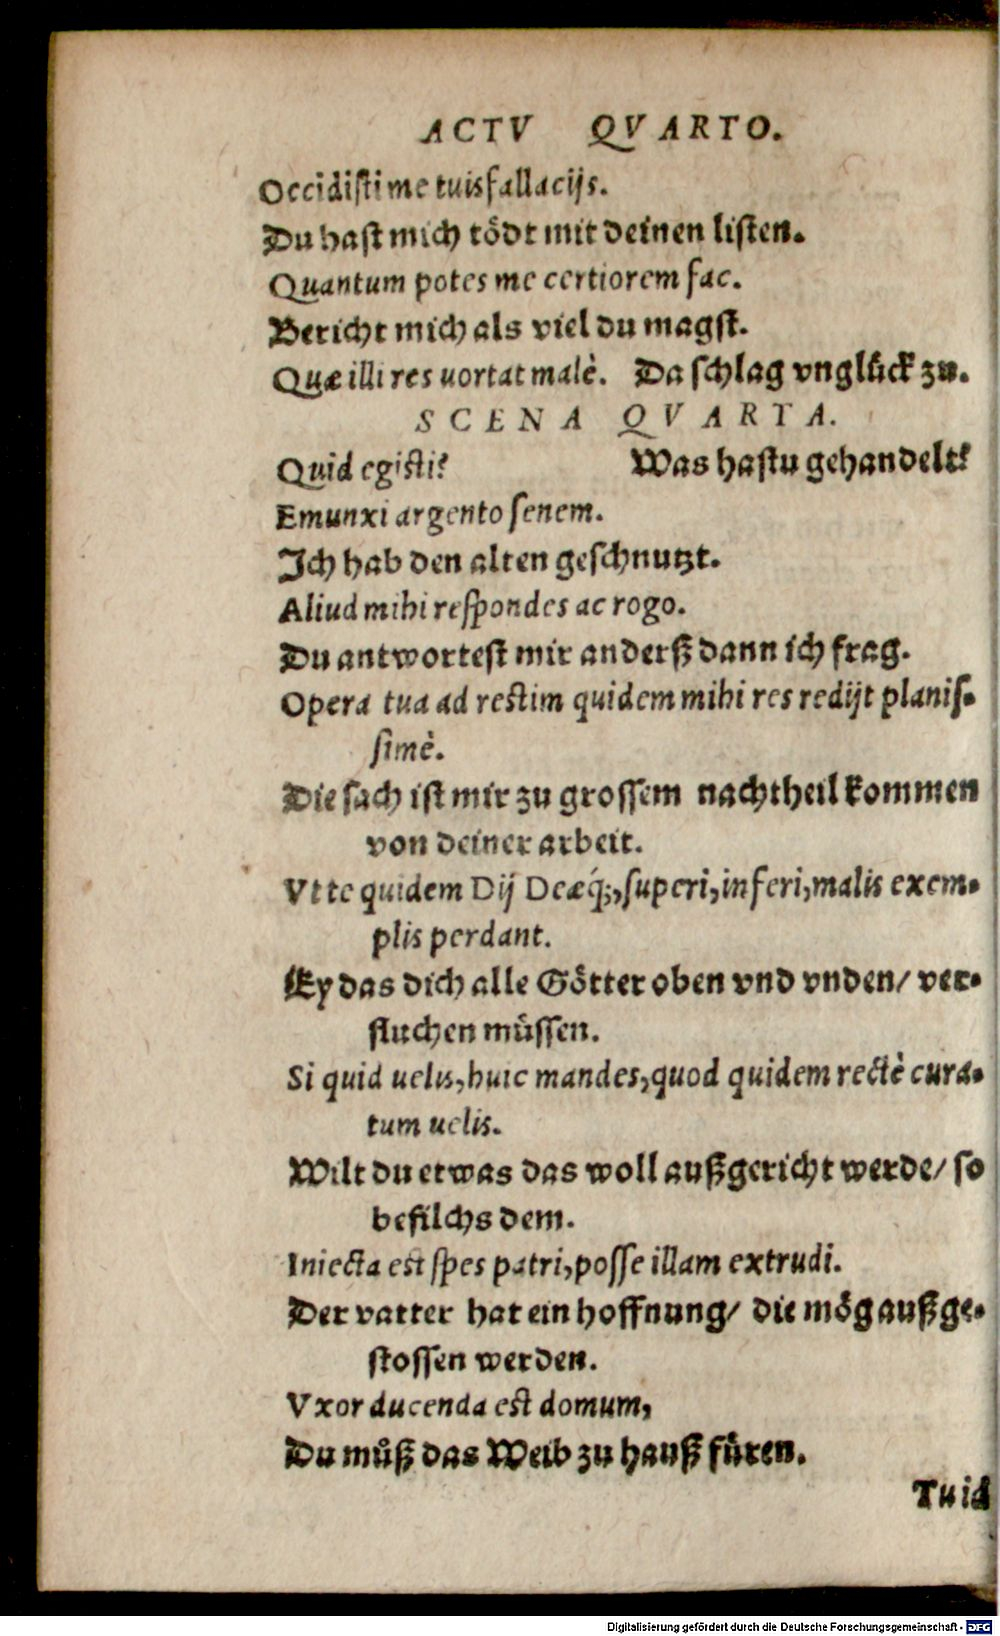 ACTV QVARTO.
Occidisti me tuis fallacijs.
Du hast mich tödt mit deinen listen.
Quantum potes me certiorem fac.
Bericht mich als viel du magst.
Quæ illi res uortat malè. Da schlag vnglück zu.
SCENA QVARTA.
Quid egisti? Was hastu gehandelt?
Emunxi argento senem.
Ich hab den alten geschnutzt.
Aliud mihi respondes ac rogo.
Du antwortest mir anderß dann ich frag.
Opera tua ad restim quidem mihi res redijt planis-
simè.
Die sach ist mir zu grossem nachtheil kommen
von deiner arbeit.
Vt te quidem Dij Deæq́;, superi, inferi, malis exem-
plis perdant.
Ey das dich alle Götter oben vnd vnden/ ver-
fluchen müssen.
Si quid uelis, huic mandes, quod quidem rectè cura-
tum uelis.
Wilt du etwas das woll außgericht werde/ so
befilchs dem.
Iniecta est spes patri, posse illam extrudi.
Der vatter hat ein hoffnung/ die mög außge-
stossen werden.
Vxor ducenda est domum,
Du můß das Weib zu hauß füren.
Tuid
Digitalisierung gefördert durch die Deutsche Forschungsgemeinschaft - DFG